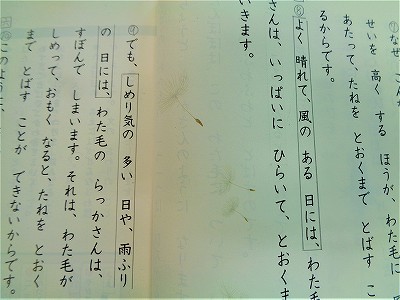 せいを 高く する ほうが、わた毛に
あたって、たねを とおくまで とばす こ
るからです。
⑧よく 晴れて、風の ある 日には、わた毛
さんは、いっぱいに ひらいて、とおくま
いきます。
⑨でも、しめり気の 多い 日や、雨ふり
の 日には、わた毛の らっかさんは、
すぼんで しまいます。それは、わた毛が
しめって、おもく なると、たねを とおく
まで とばす ことが できないからです。
このように、